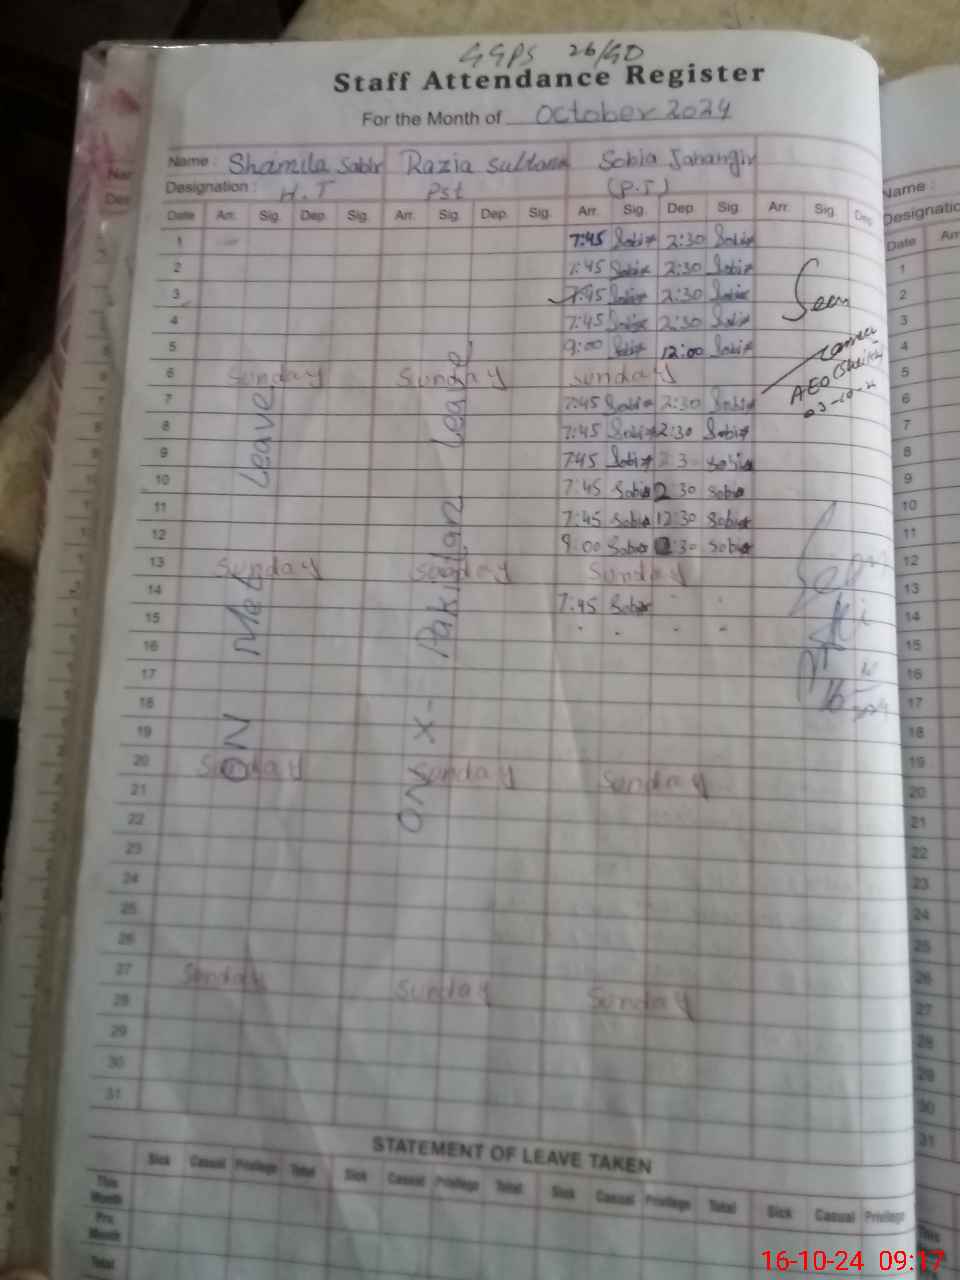 GGPS 26/GD
Staff Attendance Register
For the Month of October 2024
Name : Shamila Sabir Razia Sultana Sobia Jahangir
Designation : H.T Pst (P.S.T)
Date Arr. Sig. Dep. Sig. Arr. Sig. Dep. Sig. Arr. Sig. Dep. Sig. Arr. Sig. Dep.
1 7:45 Sobia 2:30 Sobia
2 7:45 Sobia 2:30 Sobia
3 7:45 Sobia 2:30 Sobia Seen
4 7:45 Sobia 2:30 Sobia
5 9:00 Sobia 12:00 Sobia
6 Sunday Sunday Sunday
AEO
03-10-24
7 7:45 Sobia 2:30 Sobia
8 7:45 Sobia 2:30 Sobia
9 7:45 Sobia 2:3 Sobia
10 7:45 Sobia 2:30 Sobia
11 7:45 Sobia 12:30 Sobia
12 Sobia :30 Sobia
13 Sunday Sunday Sunday
14 7:45 Sobia
15
16
17
18
19
20 Sunday Sunday Sunday
21
22
23
24
25
26
27 Sunday Sunday Sunday
28
29
30
31
ON Met Leave
ON X-Pakistan Leave
STATEMENT OF LEAVE TAKEN
Sick Casual Privilege Total Sick Casual Privilege Total Sick Casual Privilege Total Sick Casual Privilege
This Month
Pre. Month
Total
Name :
Designatio
Date Arr
1
2
3
4
5
6
7
8
9
10
11
12
13
14
15
16
17
18
19
20
21
22
23
24
25
26
27
28
29
30
31
16-10-24 09:17